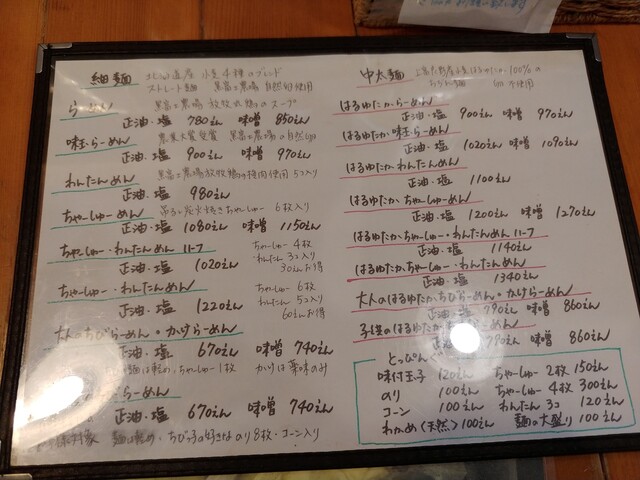 細麺 北海道産 小麦4種のブレンド
ストレート麺 黒富士農場 自然卵使用
らーめん 黒富士農場 放牧式鶏のスープ
正油・塩 780えん 味噌 850えん
味玉らーめん 農業大賞受賞 黒富士農場の自然卵
正油・塩 900えん 味噌 970えん
わんたんめん 黒富士農場放牧鶏の挽肉使用 5コ入り
正油・塩 980えん
ちゃーしゅーめん 吊るし炭火焼きちゃーしゅー 6枚入り
正油・塩 1080えん 味噌 1150えん
ちゃーしゅー・わんたんめん ハーフ ちゃーしゅー 4枚
わんたん 3コ入り
正油・塩 1020えん 30えんお得
ちゃーしゅー・わんたんめん ちゃーしゅー 6枚
わんたん 5コ入り
正油・塩 1220えん 60えんお得
大人のちびらーめん・かけらーめん
正油・塩 670えん 味噌 740えん
麺は軽め・ちゃーしゅー1枚 かけは薬味のみ
らーめん
正油・塩 670えん 味噌 740えん
対象 麺は軽め・ちびっ子の好きな のり8枚・コーン入り
中太麺 はるゆたか 100%の
卵不使用
はるゆたからーめん
正油・塩 900えん 味噌 970えん
はるゆたか味玉らーめん
正油・塩 1020えん 味噌 1090えん
はるゆたかわんたんめん
正油・塩 1100えん
はるゆたかちゃーしゅーめん
正油・塩 1200えん 味噌 1270えん
はるゆたかちゃーしゅー・わんたんめん ハーフ
正油・塩 1140えん
はるゆたかちゃーしゅー・わんたんめん
正油・塩 1340えん
大人のはるゆたかちびらーめん・かけらーめん
正油・塩 790えん 味噌 860えん
子供のはるゆたかちびらーめん
正油・塩 790えん 味噌 860えん
とっぴんぐ
味付玉子 120えん ちゃーしゅー 2枚 150えん
のり 100えん ちゃーしゅー 4枚 300えん
コーン 100えん わんたん 3コ 120えん
わかめ(天然) 100えん 麺の大盛り 100えん